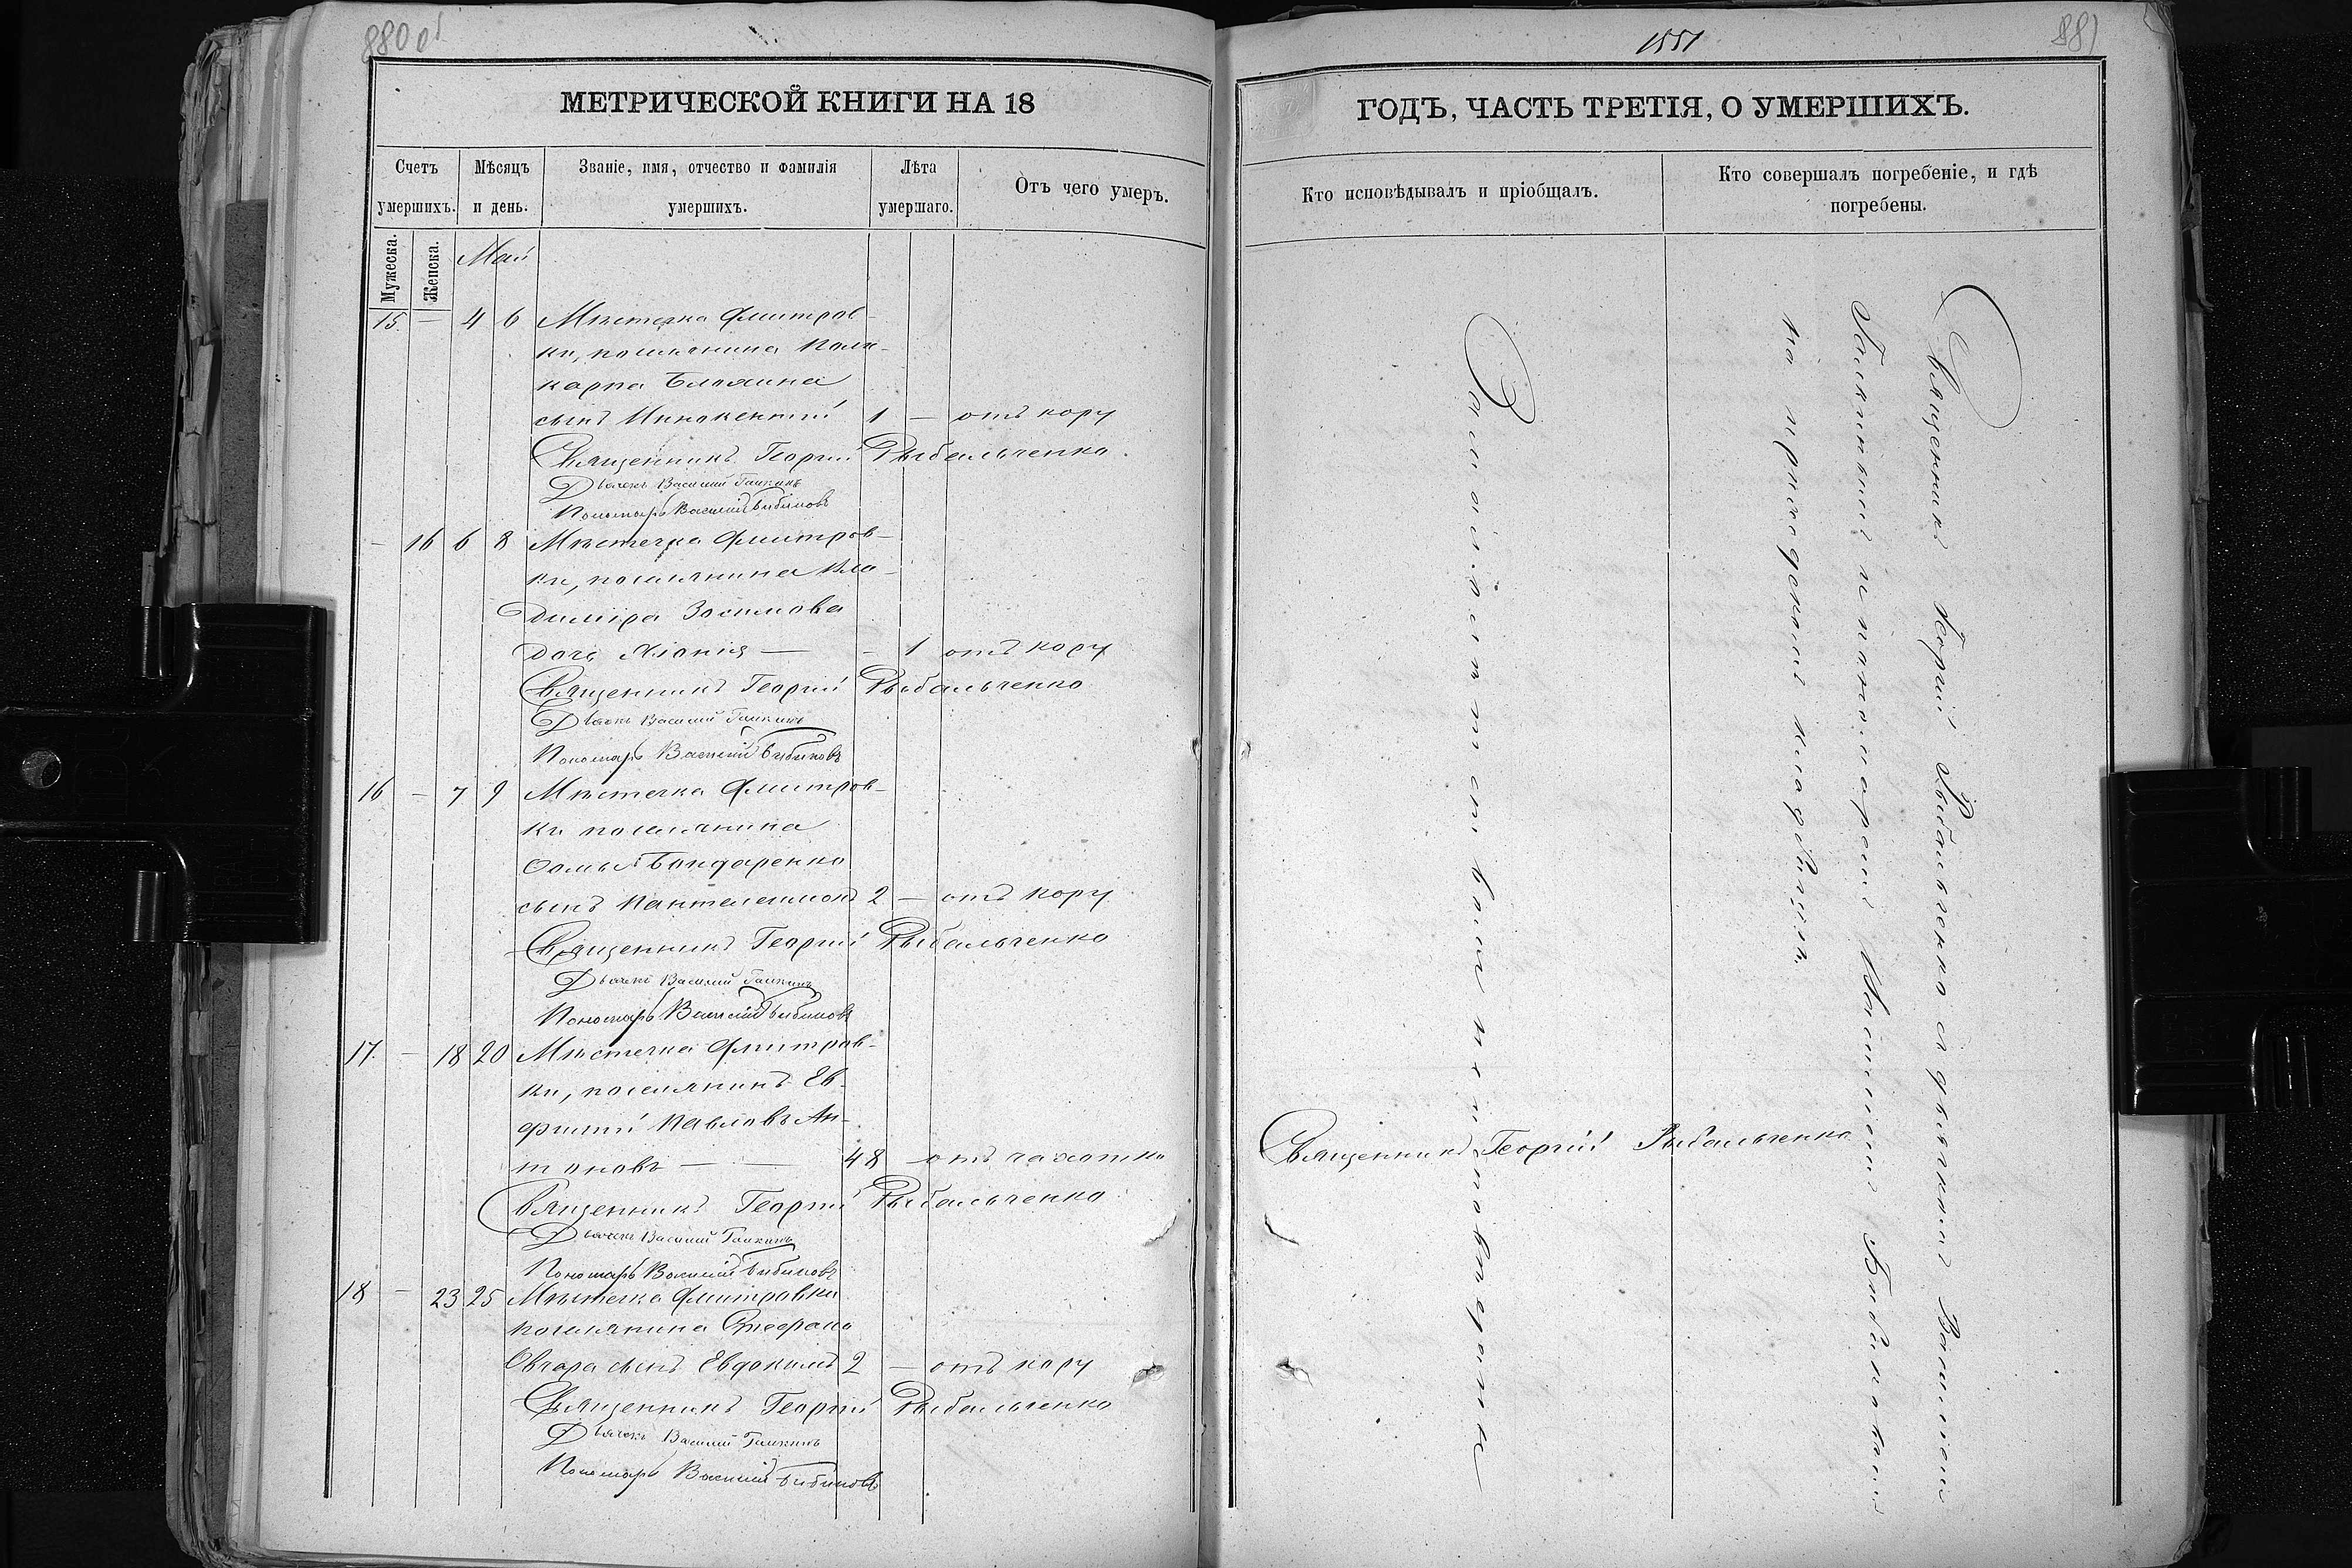 880 об
МЕТРИЧЕСКОЙ КНИГИ НА 18
Счетъ умершихъ.
Мѣсяцъ и день.
Званіе, имя, отчество и фамилія умершихъ.
Лѣта умершаго.
Отъ чего умеръ.
Мужеска.
Женска.
Май
15. — 4 6 Мѣстечка Дмитров-
ки, поселянина Поли-
карпа Блохина
сынъ Иннокентій 1 — отъ кору
Священникъ Георгій Рыбальченко.
Дьячекъ Василий Галкинъ
Пономарь Василій Бибиковъ
— 16 6 8 Мѣстечка Дмитров-
ки, поселянина Вла-
диміра Зосимова
дочь Хіонія — — 1 отъ кору
Священникъ Георгій Рыбальченко
Дьячекъ Василий Галкинъ
Пономарь Василій Бибиковъ
16 — 7 9 Мѣстечка Дмитров-
ки поселянина
Ѳомы Бондаренко
сынъ Пантелеимонъ 2 — отъ кору
Священникъ Георгій Рыбальченко
Дьячекъ Василий Галкинъ
Пономарь Василій Бибиковъ
17. — 18 20 Мѣстечка Дмитров-
ки, поселянинъ Ев-
фимій Павловъ Ан-
тоновъ — — 48 отъ чахотки
Священникъ Георгій Рыбальченко
Дьячекъ Василий Галкинъ
Пономарь Василій Бибиковъ
18 — 23 25 Мѣстечка Дмитровки
поселянина Стефана
Овчара сынъ Евдокимъ 2 — отъ кору
Священникъ Георгій Рыбальченко
Дьячекъ Василий Галкинъ
Пономарь Василій Бибиковъ
1551
881
ГОДЪ, ЧАСТЬ ТРЕТІЯ, О УМЕРШИХЪ.
Кто исповѣдывалъ и пріобщалъ.
Кто совершалъ погребеніе, и гдѣ погребены.
За малолѣтствомъ не исповѣданы
Священникъ Георгій Рыбальченко
Священникъ Георгій Рыбальченко съ дьячкомъ Василіемъ
Галкинымъ и пономаремъ Василіемъ Бибиковымъ
на приходскомъ кладбищѣ.